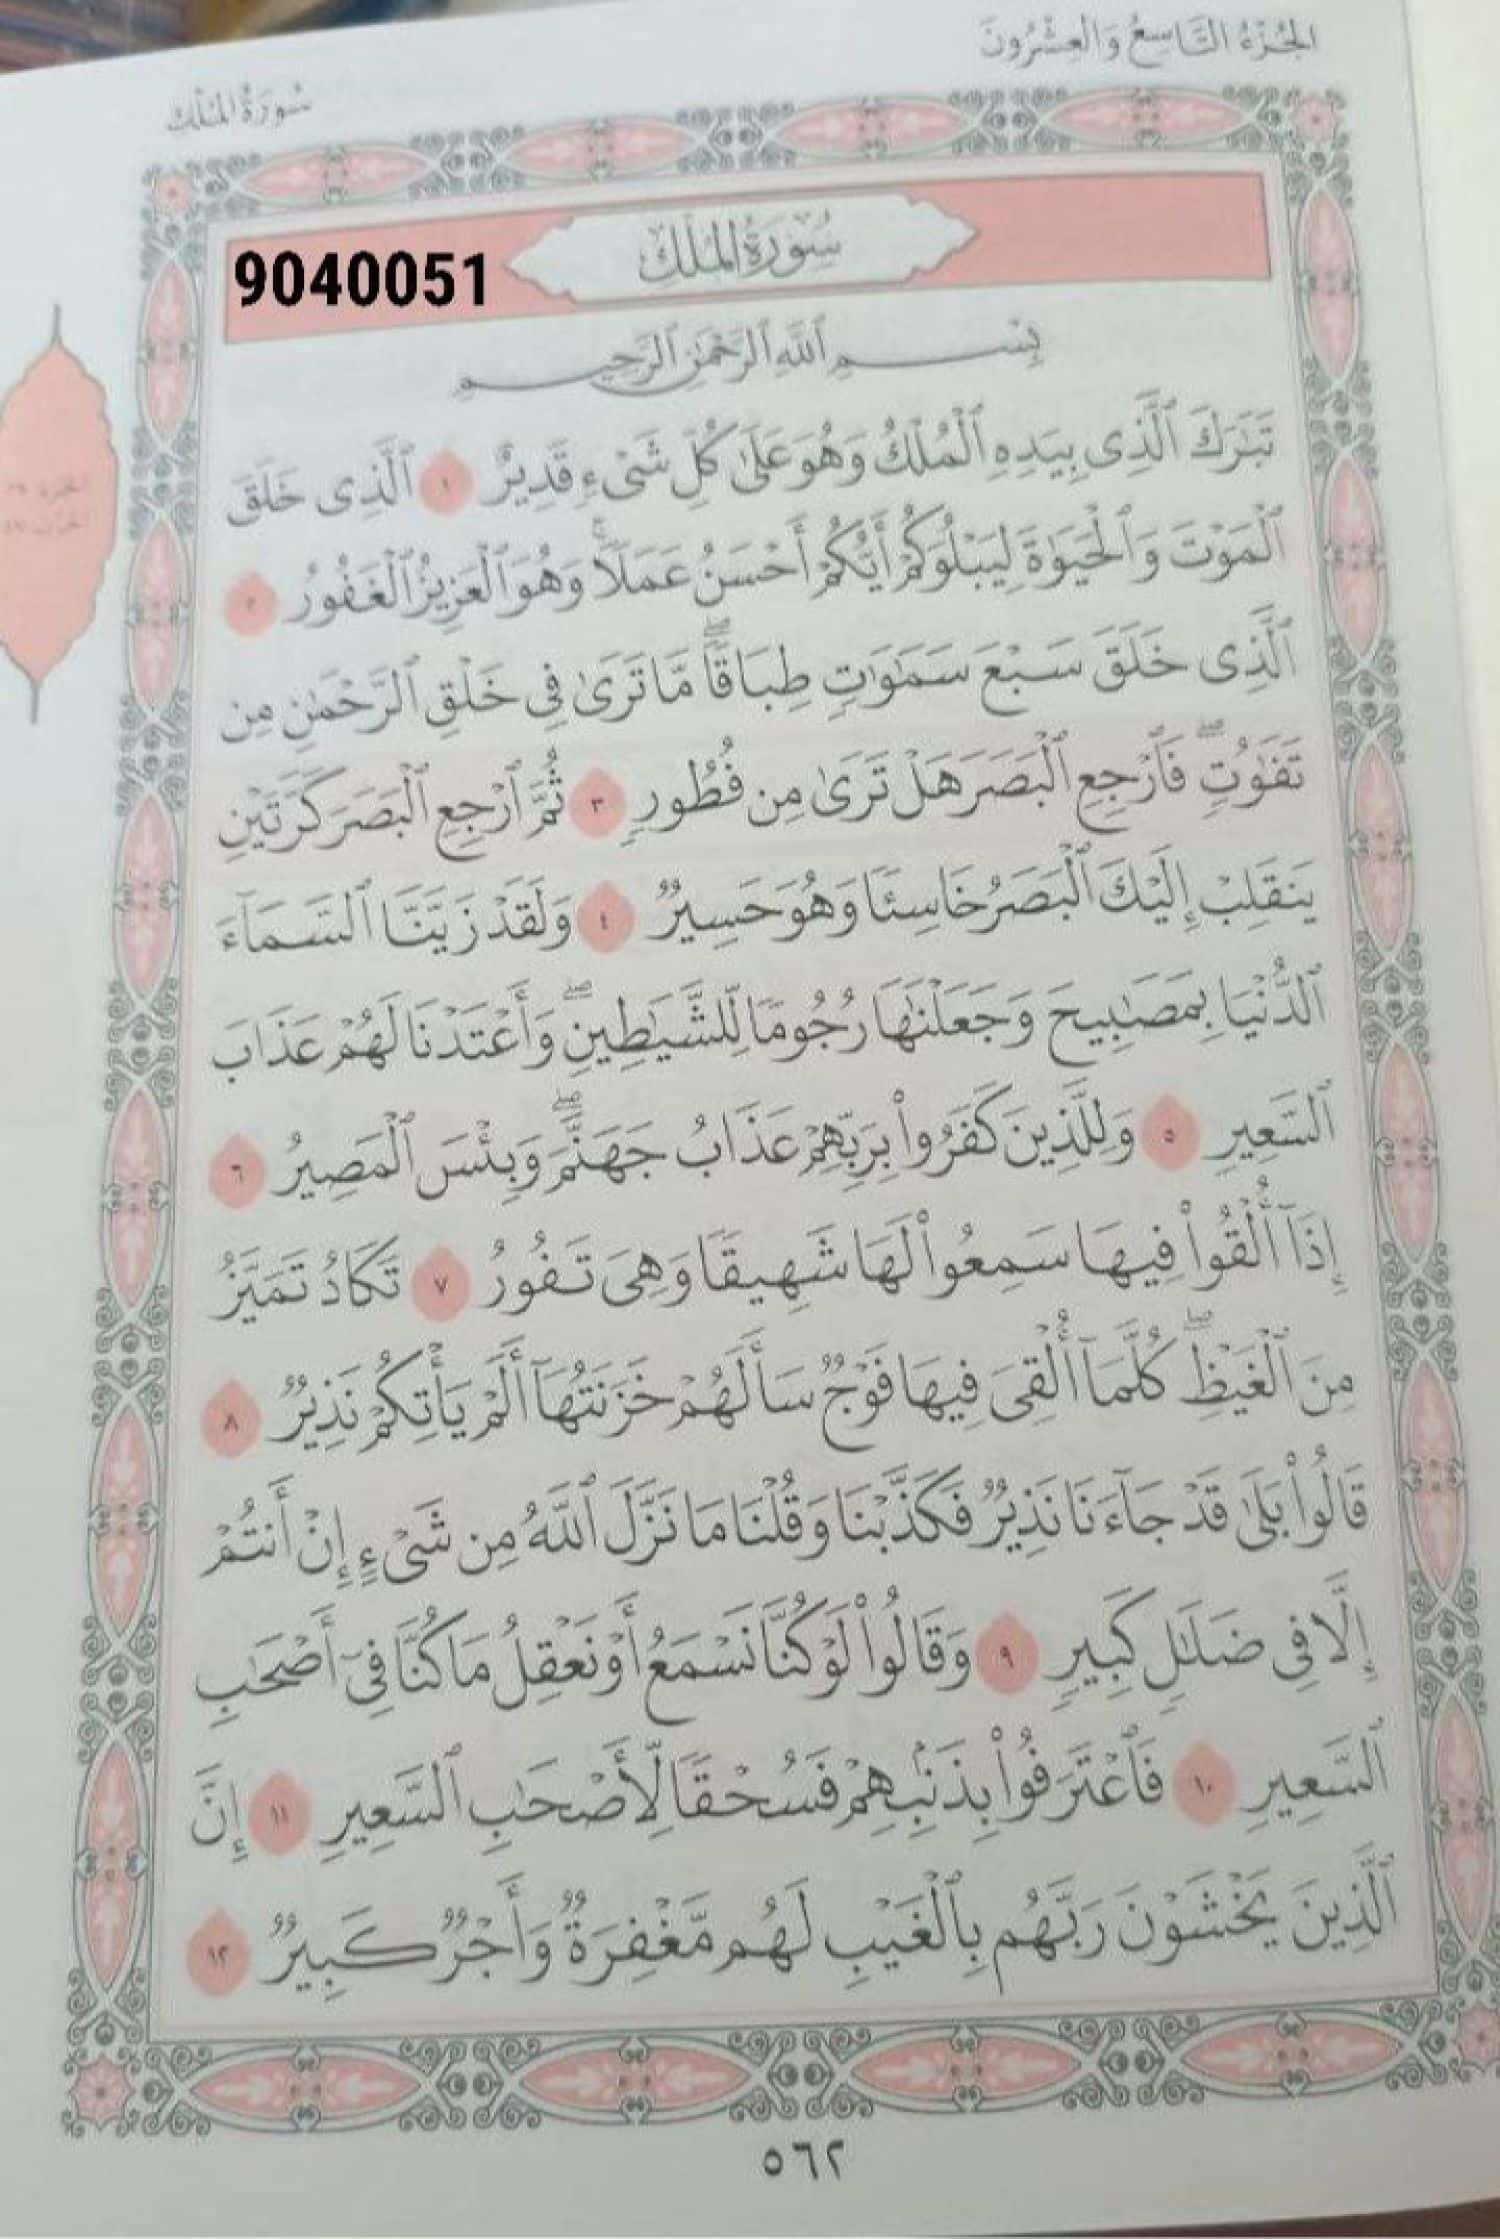 الجُزْءُ التَّاسِعُ وَالعِشْرُونَ
سُورَةُ المُلْك
سُورَةُ المُلْك
9040051
بِسْمِ ٱللَّهِ ٱلرَّحْمَٰنِ ٱلرَّحِيمِ
تَبَٰرَكَ ٱلَّذِى بِيَدِهِ ٱلْمُلْكُ وَهُوَ عَلَىٰ كُلِّ شَىْءٍ قَدِيرٌ ١ ٱلَّذِى خَلَقَ
ٱلْمَوْتَ وَٱلْحَيَوٰةَ لِيَبْلُوَكُمْ أَيُّكُمْ أَحْسَنُ عَمَلًا ۚ وَهُوَ ٱلْعَزِيزُ ٱلْغَفُورُ ٢
ٱلَّذِى خَلَقَ سَبْعَ سَمَٰوَٰتٍ طِبَاقًا ۖ مَّا تَرَىٰ فِى خَلْقِ ٱلرَّحْمَٰنِ مِن
تَفَٰوُتٍ ۖ فَٱرْجِعِ ٱلْبَصَرَ هَلْ تَرَىٰ مِن فُطُورٍ ٣ ثُمَّ ٱرْجِعِ ٱلْبَصَرَ كَرَّتَيْنِ
يَنقَلِبْ إِلَيْكَ ٱلْبَصَرُ خَاسِئًا وَهُوَ حَسِيرٌ ٤ وَلَقَدْ زَيَّنَّا ٱلسَّمَآءَ
ٱلدُّنْيَا بِمَصَٰبِيحَ وَجَعَلْنَٰهَا رُجُومًا لِّلشَّيَٰطِينِ ۖ وَأَعْتَدْنَا لَهُمْ عَذَابَ
ٱلسَّعِيرِ ٥ وَلِلَّذِينَ كَفَرُوا۟ بِرَبِّهِمْ عَذَابُ جَهَنَّمَ ۖ وَبِئْسَ ٱلْمَصِيرُ ٦
إِذَآ أُلْقُوا۟ فِيهَا سَمِعُوا۟ لَهَا شَهِيقًا وَهِىَ تَفُورُ ٧ تَكَادُ تَمَيَّزُ
مِنَ ٱلْغَيْظِ ۖ كُلَّمَآ أُلْقِىَ فِيهَا فَوْجٌ سَأَلَهُمْ خَزَنَتُهَآ أَلَمْ يَأْتِكُمْ نَذِيرٌ ٨
قَالُوا۟ بَلَىٰ قَدْ جَآءَنَا نَذِيرٌ فَكَذَّبْنَا وَقُلْنَا مَا نَزَّلَ ٱللَّهُ مِن شَىْءٍ إِنْ أَنتُمْ
إِلَّا فِى ضَلَٰلٍ كَبِيرٍ ٩ وَقَالُوا۟ لَوْ كُنَّا نَسْمَعُ أَوْ نَعْقِلُ مَا كُنَّا فِىٓ أَصْحَٰبِ
ٱلسَّعِيرِ ١٠ فَٱعْتَرَفُوا۟ بِذَنۢبِهِمْ فَسُحْقًا لِّأَصْحَٰبِ ٱلسَّعِيرِ ١١ إِنَّ
ٱلَّذِينَ يَخْشَوْنَ رَبَّهُم بِٱلْغَيْبِ لَهُم مَّغْفِرَةٌ وَأَجْرٌ كَبِيرٌ ١٢
٥٦٢